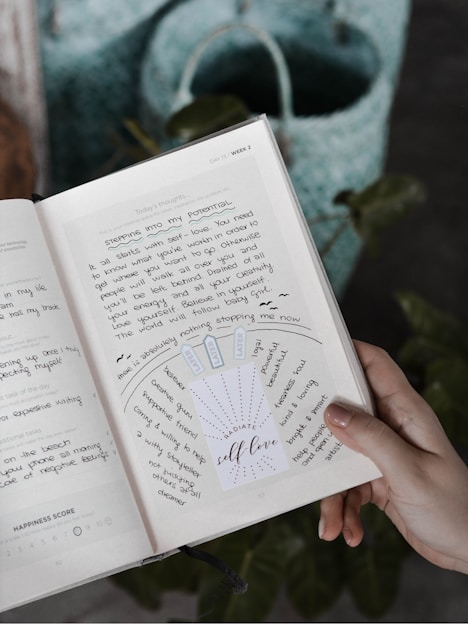 in my life
am
e has my back
ening up once I truly
pecting myself
task of the day
for expensive killing
on the beach
your phone all morning
Lose of negative feelings
HAPPINESS SCORE
1 2 3 4 5 6 7 8 9 10
DAY 13 | WEEK 2
Today's thoughts...
STEPPING INTO MY POTENTIAL
It all starts with self-love. You need
to know what you're worth in order to
get where you want to go. Otherwise
people will walk all over you and
you'll be left behind drained of all
your energy and all your creativity.
Love yourself. Believe in yourself.
The world will follow baby girl.
there is absolutely nothing stopping me now
LAYER
LAYER
LAYER
creative giant
supportive friend
caring & willing to help
a witty storyteller
not bullying
others at all
dreamer
RADIATE
self-love
loyal
powerful
beautiful
fearless you
kind & loving
bright & smart
help people
and open